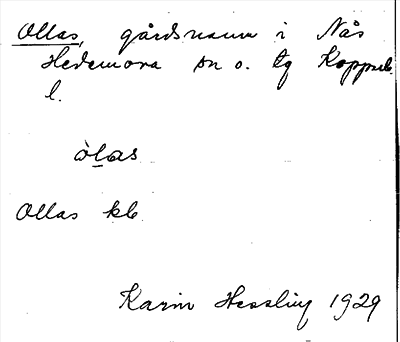 Ollas, gårdsnamn i Nås
Hedemora sn o. tg Kopparb.
l.
òlas
Ollas kb
Karin Hessling 1929